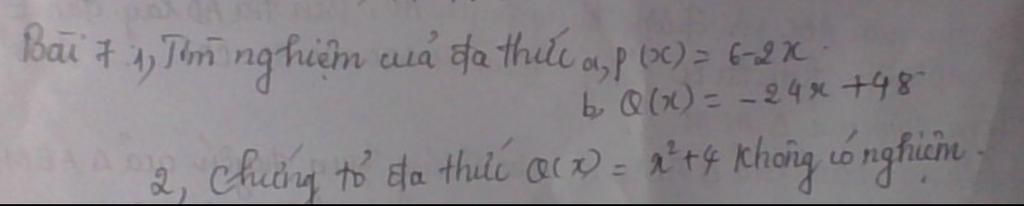 Bài 7 1, Tìm nghiệm cuả đa thức a, p(x) = 6-2x.
b, Q(x) = -24x +48
2, Chứng tỏ đa thức Q(x) = x²+4 không có nghiệm.